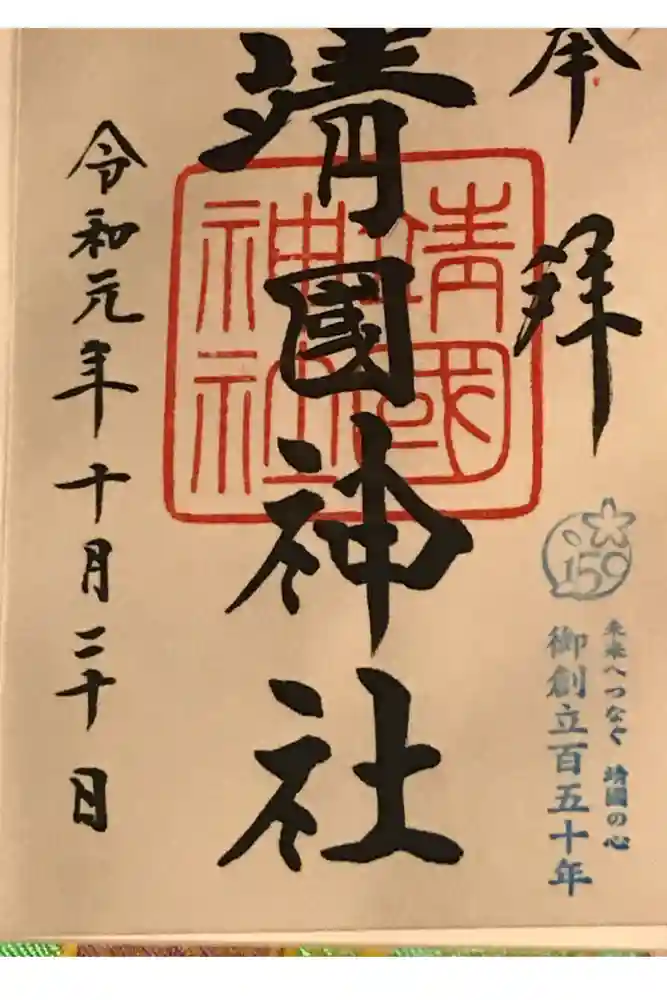 奉拝
靖國神社
靖國
神社
150
未来へつなぐ 靖國の心
御創立百五十年
令和元年十月二十日